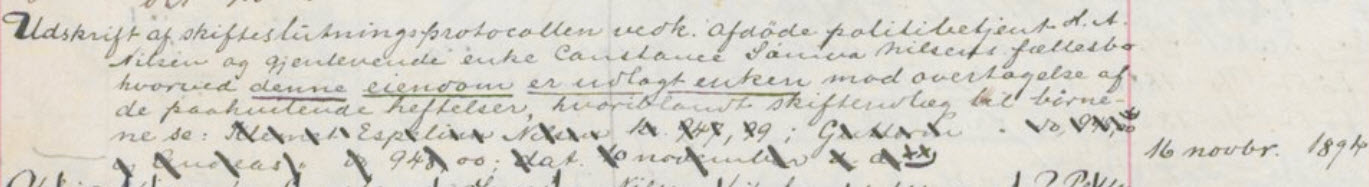 Udskrift af skifteslutningsprotocollen vedk. afdöde politibetjent H. A.
Nilsen og gjenlevende enke Constance Nilsens fællesbo
hvorved denne eiendom er udlagt enken mod overtagelse af
de paahvilende heftelser, hvoriblandt skifteudlæg til börne-
ne se: Espelin Nilsen kr. 947,99;
Andreas 948,00; dat. 10 november
16 novbr. 1894